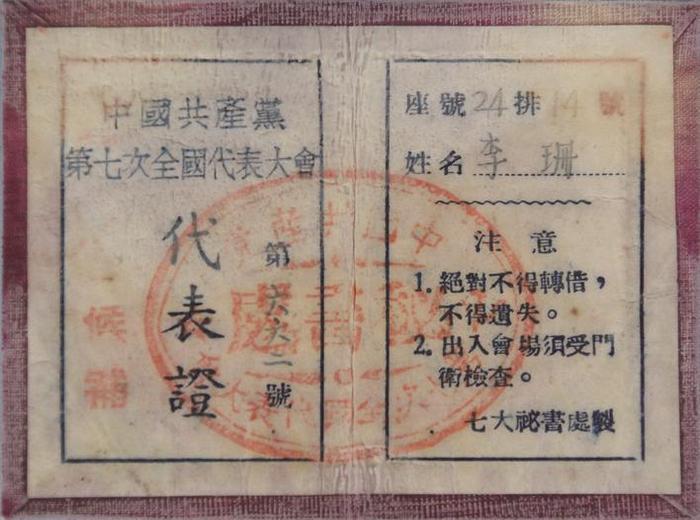 中國共產黨
第七次全國代表大會
代表證
第六六二號
候補
座號24排14號
姓名李珊
注意
1. 絕對不得轉借，
不得遺失。
2. 出入會場須受門
衛檢查。
七大祕書處製